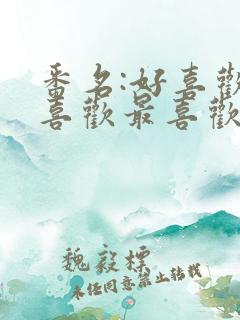 番名:好喜歡
喜歡最喜歡
魏毅標
未經同意禁止转载